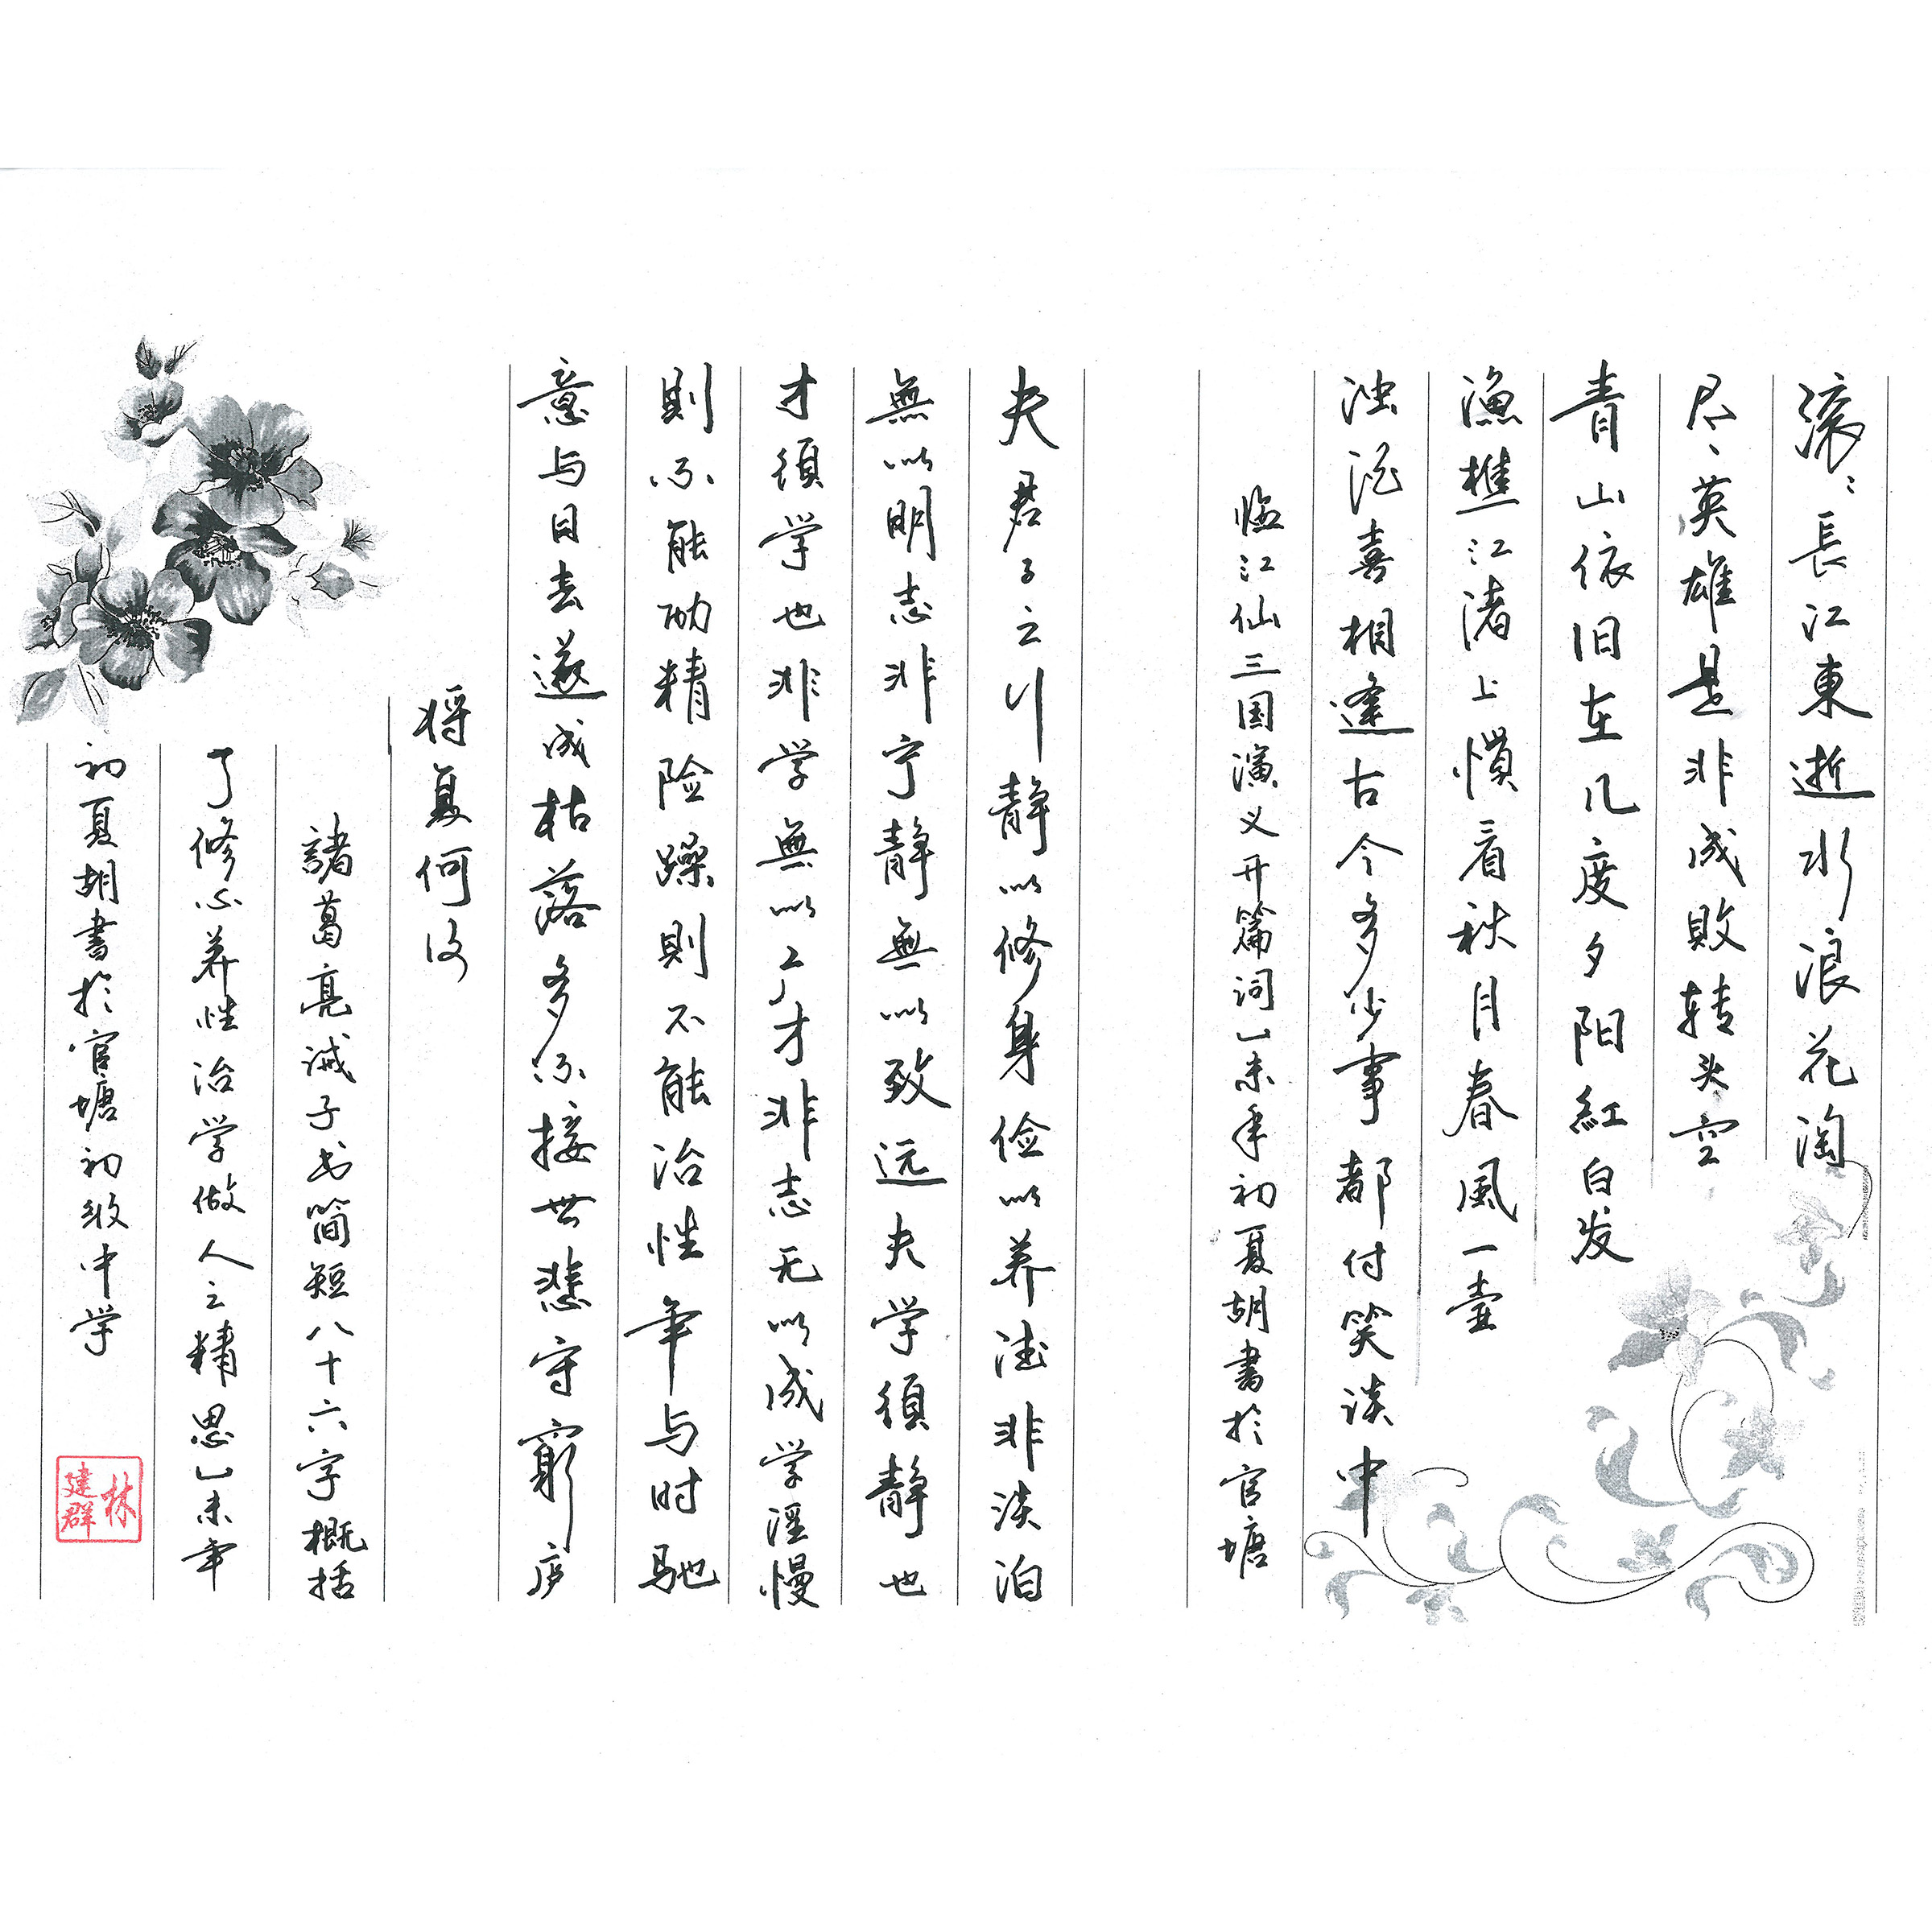 滚滚長江東逝水浪花淘
尽英雄是非成敗转头空
青山依旧在几度夕阳紅白发
漁樵江渚上惯看秋月春風一壶
浊酒喜相逢古今多少事都付笑谈中
临江仙三国演义开篇词乙未年初夏胡書於官塘
夫君子之行静以修身俭以养德非淡泊
無以明志非宁静無以致远夫学須静也
才須学也非学無以广才非志无以成学淫慢
則不能励精险躁則不能治性年与时驰
意与日去遂成枯落多不接世悲守窮庐
将复何及
諸葛亮诫子书简短八十六字概括
了修心养性治学做人之精思乙未年
初夏胡書於官塘初级中学
林建群